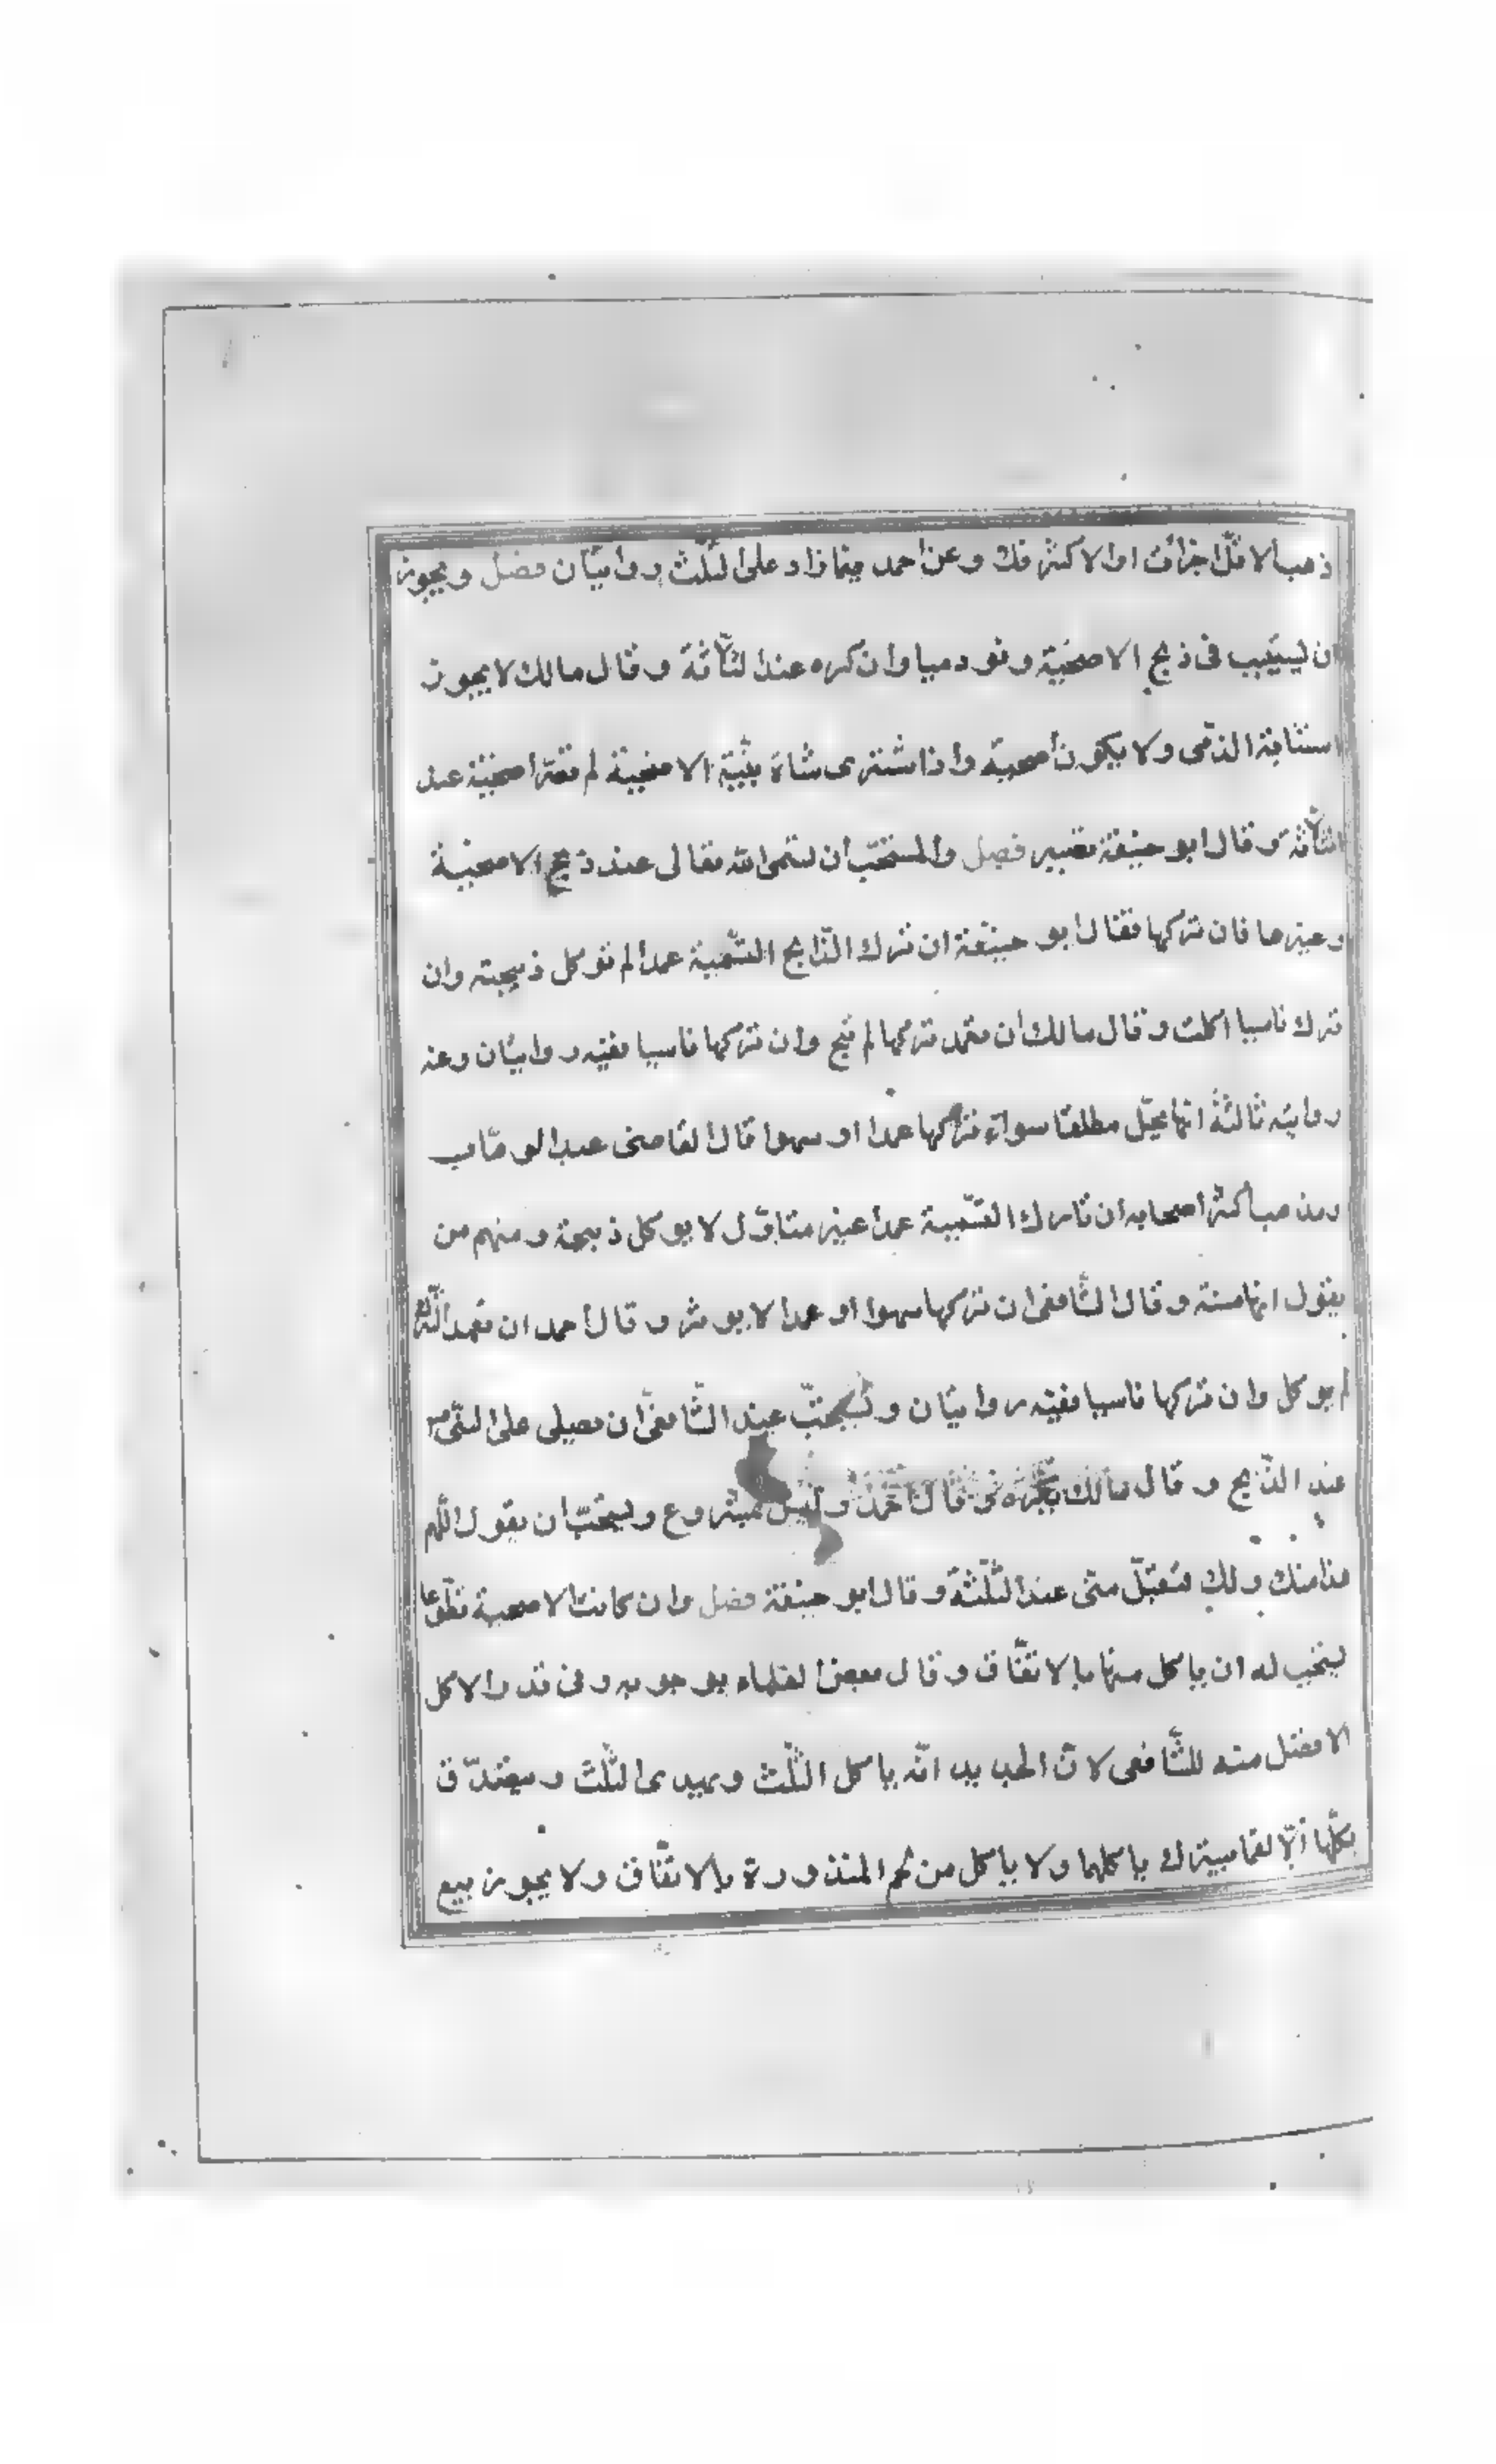 ذهب الاقل اجزأت اوالاكثر فلا وعن احمد فيما زاد على الثلث روايتان فصل ويجوز
ان يستنيب فى ذبح الاضحية ولو ذميا وان كره عند الثلاثة وقال مالك لا يجوز
استنابة الذمى ولا يكون أضحية وأذا اشترى شاة بنيّة الاضحية لم تصر اضحيّة عند
الثلاثة وقال ابو حنيفة تصير فصل والمستحبّ ان يسمى الله تعالى عند ذبح الاضحية
وغيرها فان تركها فقال ابو حنيفة ان ترك الذّابح التّسمية عمدا لم تؤكل ذبيحته وان
ترك ناسيا اكلت وقال مالك ان تعمد تركها لم تبح وان تركها ناسيا ففيه روايتان وعنه
رواية ثالثة انها تحلّ مطلقا سوآء تركها عمدا او سهوا قال القاضى عبد الوهّاب
ومذهب أكثر اصحابه ان تارك التّسمية عمدا غير متاوّل لا يوكل ذبيحة ومنهم من
يقول انها سنة وقال الشّافعى ان تركها سهوا او عمدا لا يوثر وقال أحمد ان تعمد التّرك
لم يوكل وان تركها ناسيا ففيه روايتان ويستحبّ عند الشّافعى ان يصلى على النّبى
عند الذّبح و قال مالك يكره وقال أحمد وليس بمشروع ويستحبّ ان يقول اللّهم
هذا منك ولك فتقبّل منّى عند الثلثة وقال ابو حنيفة فصل وان كانت الاضحية تطوّعا
يستحب له ان ياكل منها بالاتّفاق وقال بعض العلماء بوجوبه وفى قدر الاكل
الافضل منه للشّافعى لانّ الجديد انّه ياكل الثّلث ويهدى الثّلث ويتصدّق
بكلّها الّا لقما يتبرك ياكلها ولا ياكل من لحم المنذورة بالاتّفاق ولا يجوز بيع